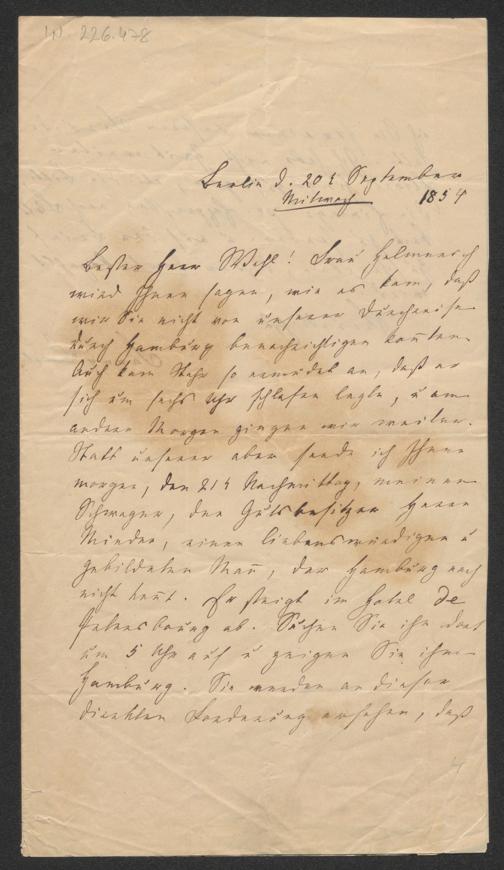 IN 226.478
Berlin d. 20t September
Mittwoch 1854
Bester Herr Wehl! Frau
wird Ihnen sagen, wie es kam, daß
wir Sie nicht von unserer Durchreise
durch Hamburg benachrichtigen konnten.
Auch kam Stahr so ermüdet an, daß er
sich um sechs Uhr schlafen legte, u am
andern Morgen gingen wir weiter.
Statt unserer aber sende ich Ihnen
morgen, den 21t Nachmittag, meinen
Schwager, den Gutsbesitzer Herrn
Minden, einen liebenswürdigen u
gebildeten Mañ, der Hamburg noch
nicht keñt. Er steigt im Hotel de
Petersbourg ab. Suchen Sie ihn dort
um 5 Uhr auf u zeigen Sie ihm
Hamburg. Sie werden an dieser
direkten Forderung ersehen, daß
4